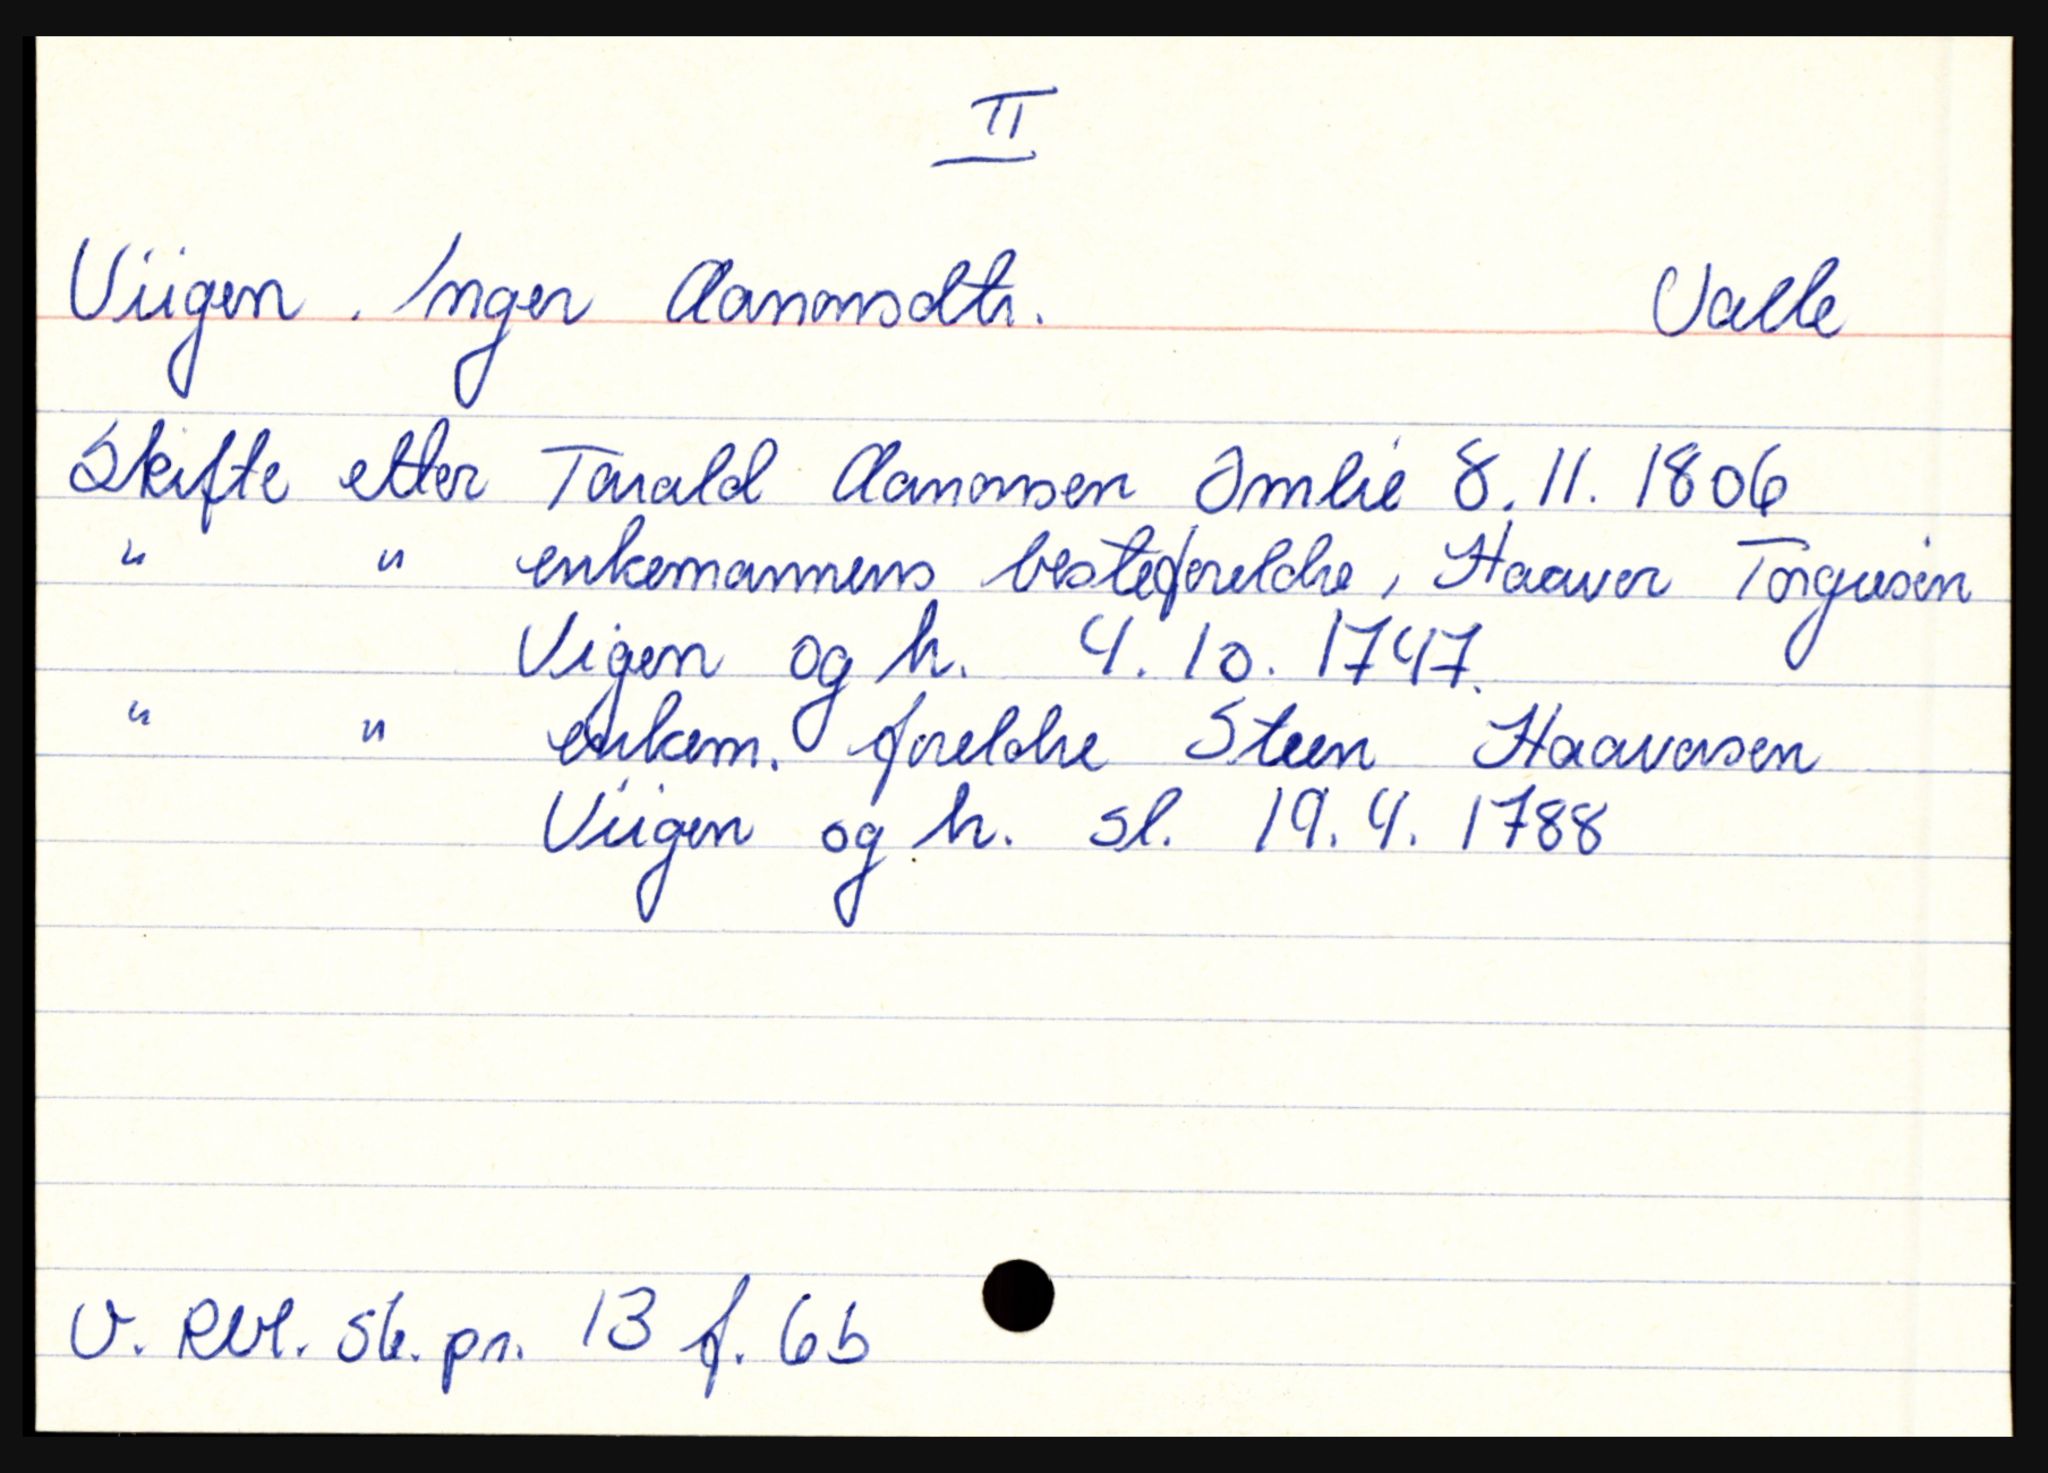 II
Viigen. Inger Aanonsdtr. Valle
Skifte etter Tarald Aanonsen Omlie 8.11.1806
" " enkemannens besteforeldre, Haaver Torgusen
Vigen og h. 4.10.1747.
" " enkem. foreldre Steen Haaversen
Viigen og h. sl. 19.4.1788
V. Rbl. sk. pr. 13 f. 6b